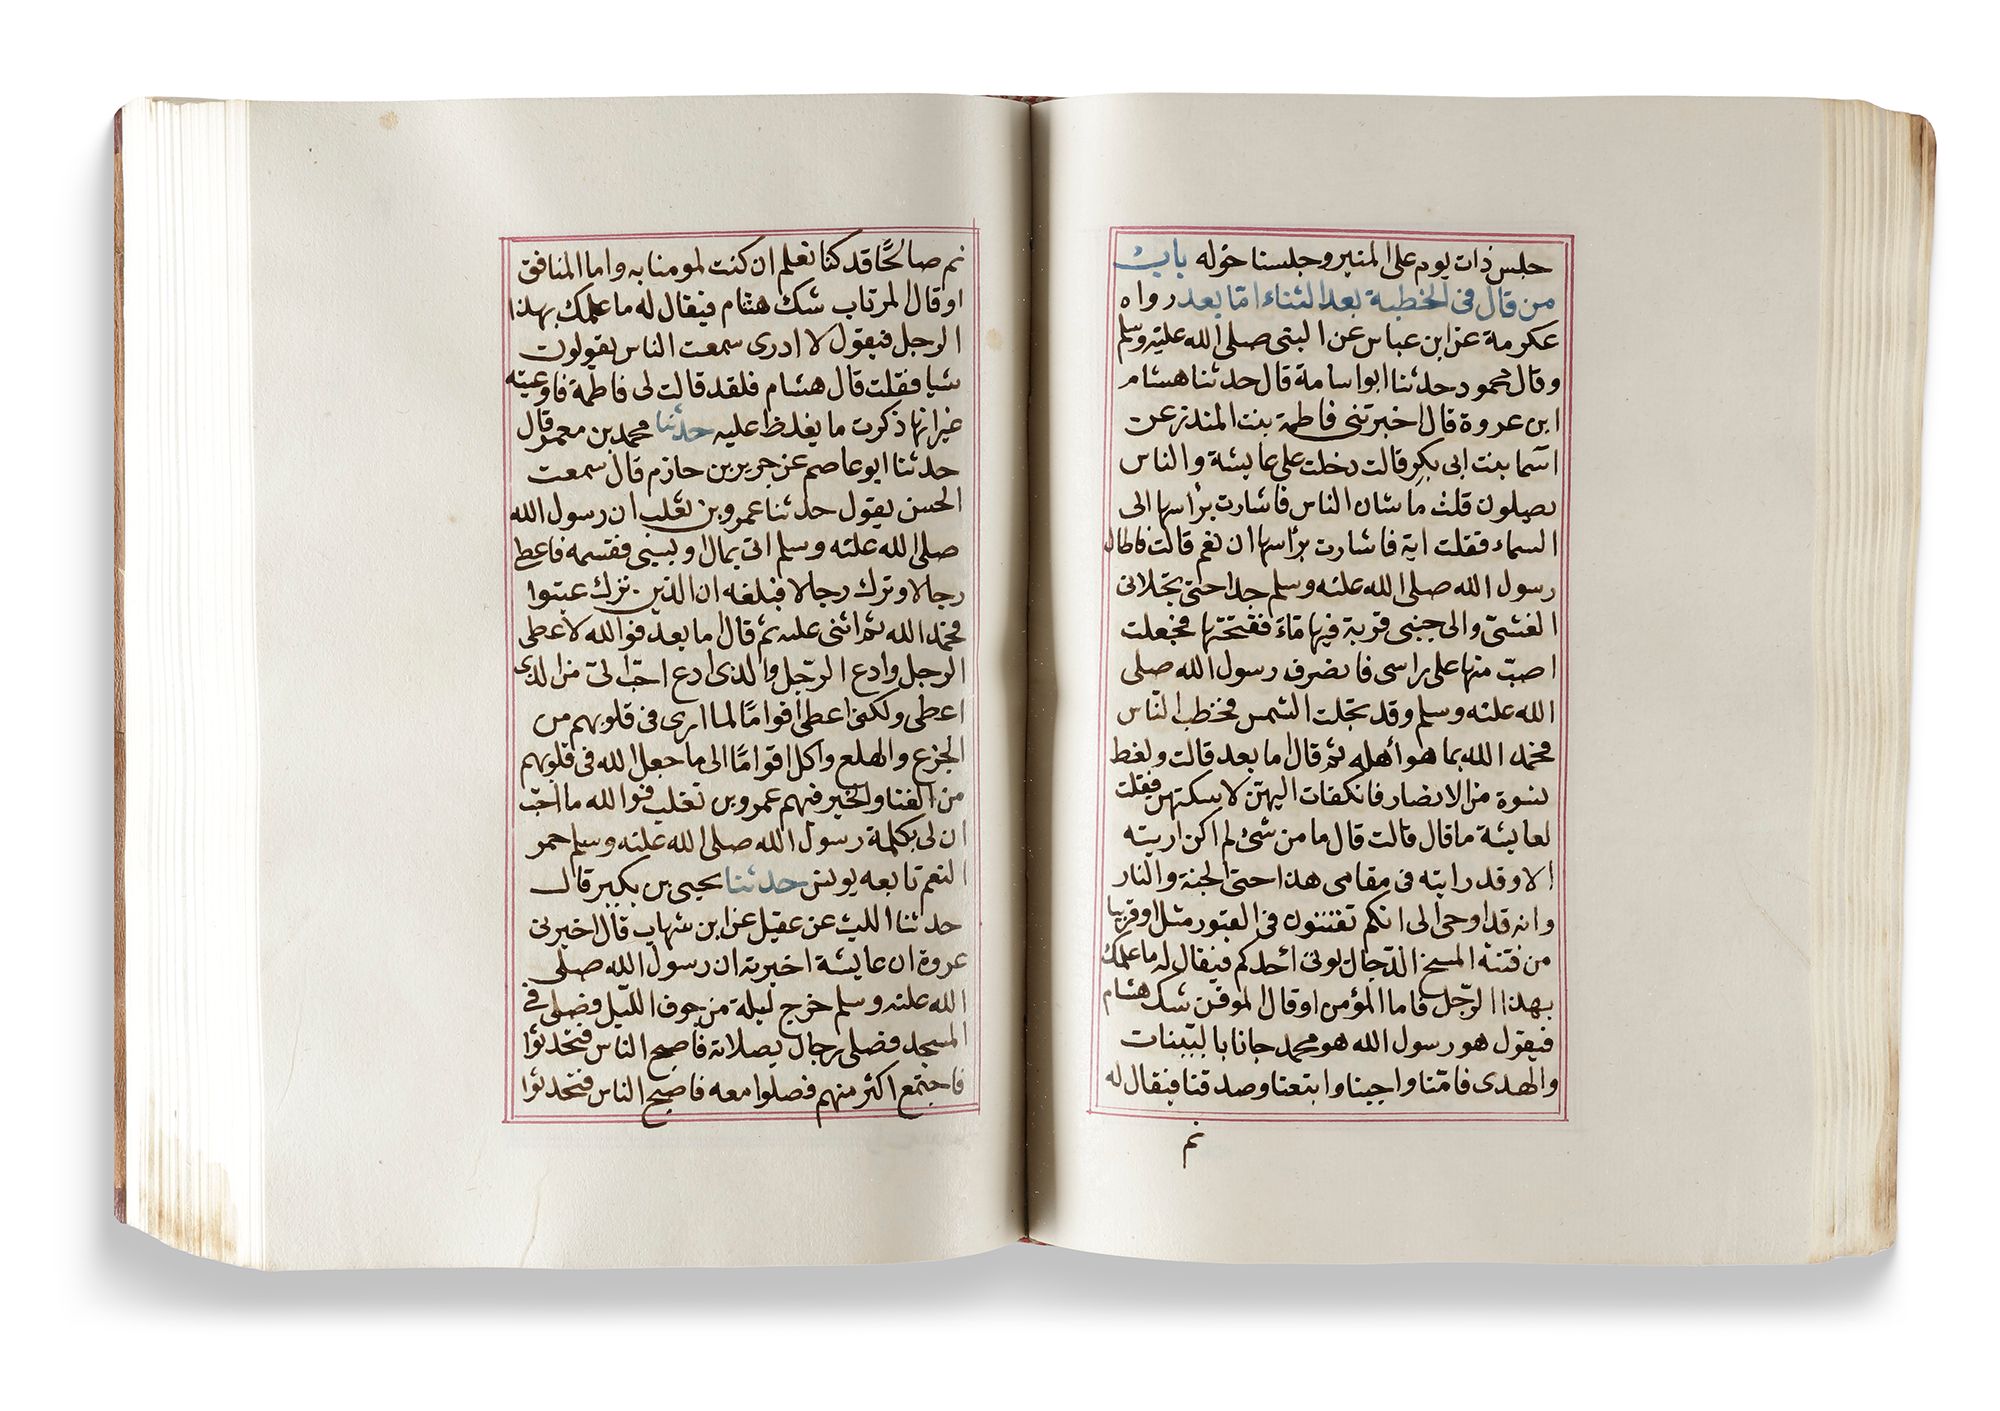 جلس ذات يوم على المنبر وجلسنا حوله باب
من قال فى الخطبة بعد الثناء امّا بعد رواه
عكرمة عن ابن عباس عن النبى صلى الله عليه وسلم
وقال محمود حدثنا ابو اسامة قال حدثنا هشام
ابن عروة قال اخبرتنى فاطمة بنت المنذر عن
اسما بنت ابى بكر قالت دخلت على عايشة والناس
يصلون قلت ما شان الناس فاشارت براسها الى
السماء فقلت اية فاشارت براسها ان نعم قالت فاطال
رسول الله صلى الله عليه وسلم جدا حتى تجلانى
الغشىّ والى جنبى قربة فيها مَاءَ ففتحتها فجعلت
اصبّ منها على راسى فانصرف رسول الله صلى
الله عليه وسلم وقد تجلت الشمس فخطب النّاس
فحمد الله بما هو أهله ثم قال اما بعد قالت ولغط
نسوة من الانصار فانكفات اليهنّ لاسكتهن فقلت
لعايشة ما قال قالت قال ما من شئ لم اكن اريته
الا وقد رايته فى مقامى هذا حتى الجنة والنار
وانه قد اوحى الى انكم تفتنون فى القبور مثل او قريبا
من فتنة المسيح الدّجال يوتى أحدكم فيقال له ما علمك
بهذا الرّجل فاما المؤمن او قال الموقن شك هشام
فيقول هو رسول الله هو محمد جانا بالبيّنات
والهدى فامّنا واجبنا واتبعنا وصدقنا فيقال له
نم
نم صالحًا قد كنا نعلم ان كنت لمومنا به واما المنافق
او قال المرتاب شك هشام فيقال له ما علمك بهذا
الرجل فيقول لا ادرى سمعت الناس يقولون
شيا فقلت قال هشام فلقد قالت لى فاطمة فاوعيته
غير انها ذكرت ما يغلظ عليه حدثنا محمد بن معمر قال
حدثنا ابو عاصم عن جرير بن حازم قال سمعت
الحسن يقول حدثنا عمرو بن تغلب ان رسول الله
صلى الله عليه وسلم اتى بمال او بسبى فقسمه فاعطى
رجالا وترك رجالا فبلغه ان الذين ترك عتبوا
فحمد الله ثم اثنى عليه ثم قال اما بعد فوالله لاعطى
الرجل وادع الرّجل والذى ادع احبّ الىّ من الذى
اعطى ولكنى اعطى اقوامًا لما ارى فى قلوبهم من
الجزع والهلع واكل اقوامًا الى ما جعل الله فى قلوبهم
من الغنا والخير فيهم عمرو بن تغلب فوالله ما احبّ
ان لى بكلمة رسول الله صلى الله عليه وسلم حمر
النعم تابعه يونس حدثنا يحيى بن بكير قال
حدثنا الليث عن عقيل عن ابن شهاب قال اخبرنى
عروة ان عايشة اخبرته ان رسول الله صلى
الله عليه وسلم خرج ليلة من جوف الليل فصلى فى
المسجد فصلى رجال بصلاته فأصبح الناس فتحدثوا
فاجتمع اكثر منهم فصلوا معه فاصبح الناس فتحدثوا